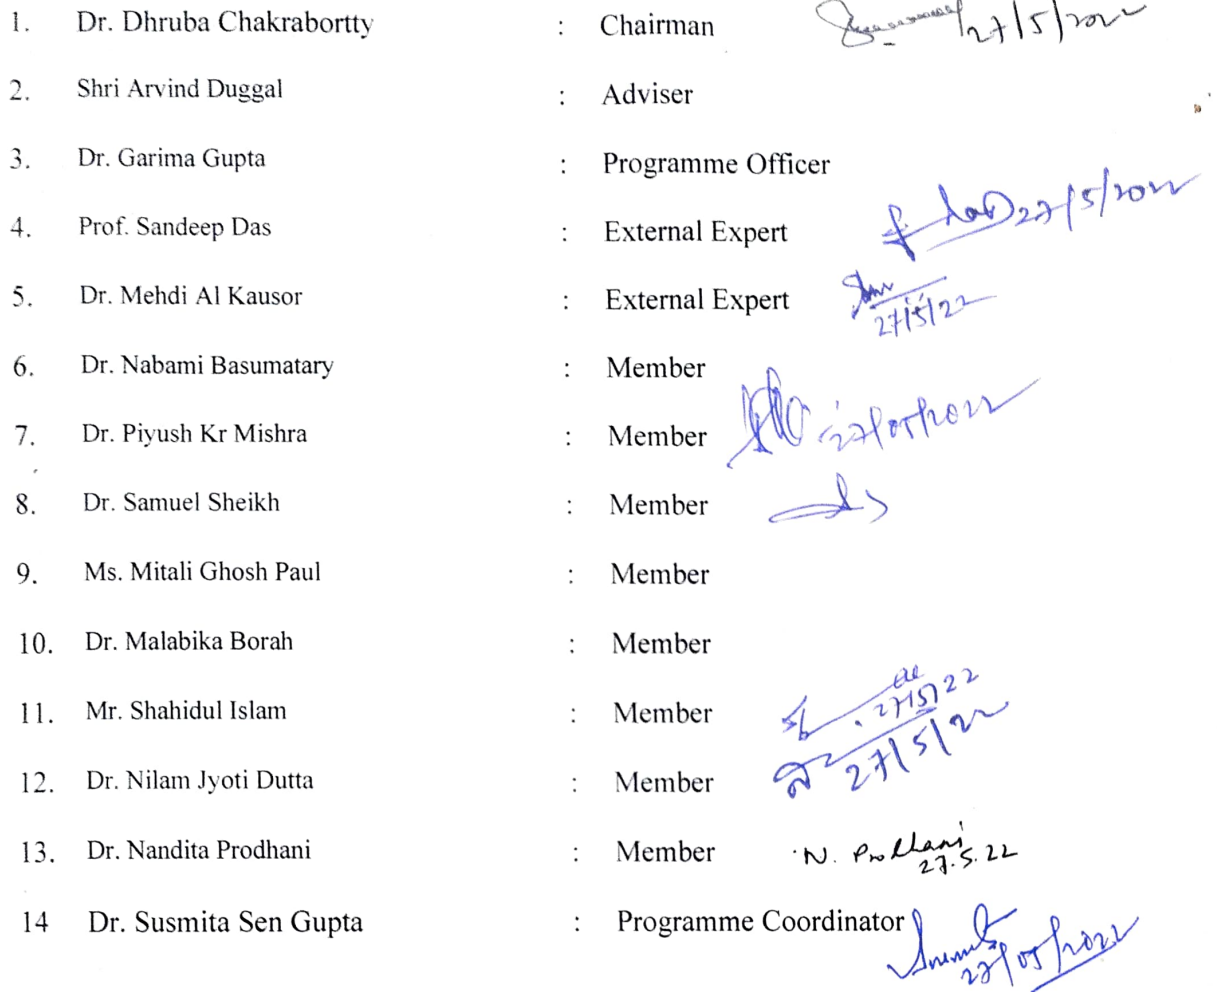 1. Dr. Dhruba Chakrabortty : Chairman 27/5/2022
2. Shri Arvind Duggal : Adviser
3. Dr. Garima Gupta : Programme Officer
4. Prof. Sandeep Das : External Expert 27/5/2022
5. Dr. Mehdi Al Kausor : External Expert
27/5/22
6. Dr. Nabami Basumatary : Member
7. Dr. Piyush Kr Mishra : Member 27/05/2022
8. Dr. Samuel Sheikh : Member
9. Ms. Mitali Ghosh Paul : Member
10. Dr. Malabika Borah : Member
11. Mr. Shahidul Islam : Member 27/5/22
12. Dr. Nilam Jyoti Dutta : Member 27/5/22
13. Dr. Nandita Prodhani : Member N. Prodhani
27.5.22
14 Dr. Susmita Sen Gupta : Programme Coordinator
27/05/2022